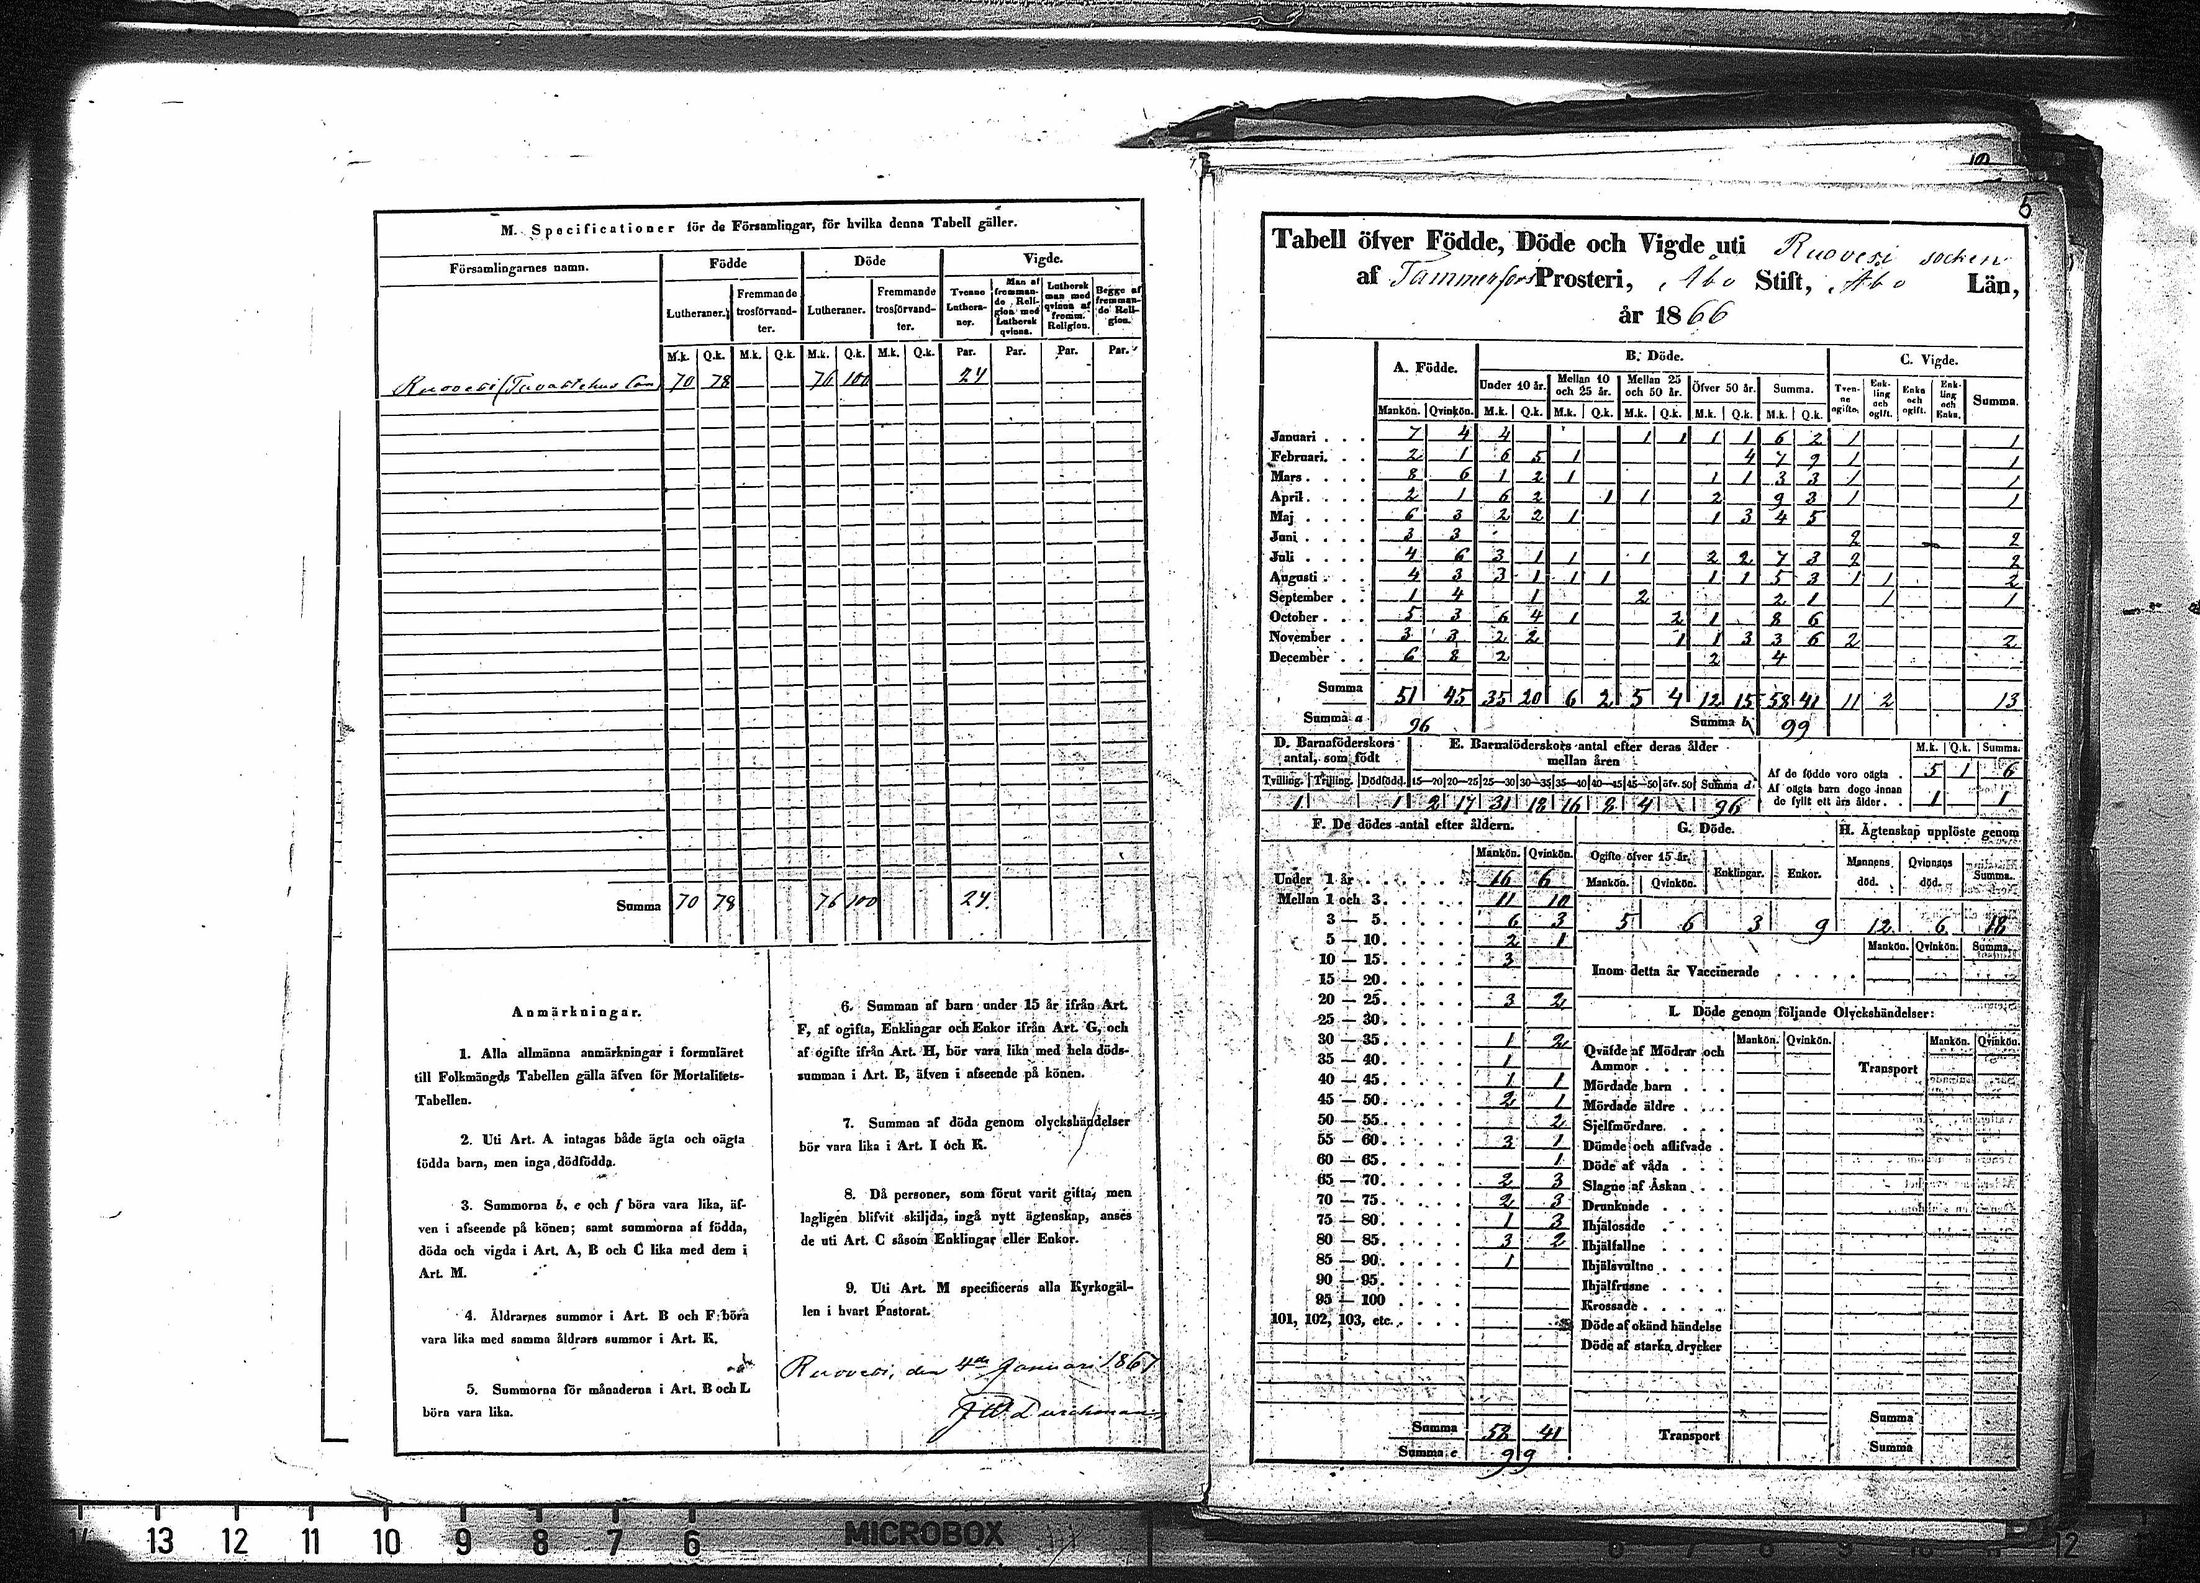 M. Specificationer för de Församlingar, för hvilka denna Tabell gäller.
Församlingarnes namn. Födde Döde Vigde.
Lutheraner. Fremmande trosförvandter. Lutheraner. Fremmande trosförvandter. Tvenne Lutheraner. Man af fremmande Religion med Luthersk qvinna. Luthersk man med qvinna af fremm. Religion. Begge af fremmande Religion.
M.k. Q.k. M.k. Q.k. M.k. Q.k. M.k. Q.k. Par. Par. Par. Par.
Ruovesi (Tavastehus Län) 70 78 76 100 24
Summa 70 78 76 100 24
Anmärkningar.
1. Alla allmänna anmärkningar i formuläret
till Folkmängds Tabellen gälla äfven för Mortalitets-
Tabellen.
2. Uti Art. A intagas både ägta och oägta
födda barn, men inga dödfödda.
3. Summorna b, e och f böra vara lika, äf-
ven i afseende på könen; samt summorna af födda,
döda och vigda i Art. A, B och C lika med dem i
Art. M.
4. Åldrarnes summor i Art. B och F böra
vara lika med samma åldrars summor i Art. K.
5. Summorna för månaderna i Art. B och L
böra vara lika.
6. Summan af barn under 15 år ifrån Art.
F, af ogifta, Enklingar och Enkor ifrån Art. G, och
af ogifte ifrån Art. H, bör vara lika med hela döds-
summan i Art. B, äfven i afseende på könen.
7. Summan af döda genom olyckshändelser
bör vara lika i Art. I och K.
8. Då personer, som förut varit gifta, men
lagligen blifvit skiljda, ingå nytt ägtenskap, anses
de uti Art. C såsom Enklingar eller Enkor.
9. Uti Art. M specificeras alla Kyrkogäl-
len i hvart Pastorat.
Ruovesi, den 4de Januari 1867
100
5
Tabell öfver Födde, Döde och Vigde uti Ruovesi socken
af Tammerfors Prosteri, Åbo Stift, Åbo Län,
år 1866
A. Födde. B. Döde. C. Vigde.
Under 10 år. Mellan 10 och 25 år. Mellan 25 och 50 år. Öfver 50 år. Summa. Tvenne ogifte. Enkling och ogift. Enka och ogift. Enkling och Enka. Summa.
Mankön. Qvinkön. M.k. Q.k. M.k. Q.k. M.k. Q.k. M.k. Q.k. M.k. Q.k.
Januari 7 4 4 1 1 1 1 6 2 1 1
Februari. 2 1 6 5 1 4 7 9 1 1
Mars 8 6 1 2 1 1 1 3 3 1 1
April. 2 1 6 2 1 1 2 9 3 1 1
Maj 6 3 2 2 1 1 3 4 5
Juni 3 3 2 2
Juli 4 6 3 1 1 1 2 2 7 3 2 2
Augusti 4 3 3 1 1 1 1 1 5 3 1 1 2
September 1 4 1 2 2 1 1 1
October 5 3 6 4 1 2 1 8 6
November 3 3 2 2 1 1 3 3 6 2 2
December 6 8 2 2 4
Summa 51 45 35 20 6 2 5 4 12 15 58 41 11 2 13
Summa a 96 Summa b 99
D. Barnaföderskors antal, som födt E. Barnaföderskors antal efter deras ålder mellan åren M.k. Q.k. Summa.
Tvilling. Trilling. Dödfödd. 15—20 20—25 25—30 30—35 35—40 40—45 45—50 öfv. 50 Summa d
Af de födde voro oägta 5 1 6
Af oägta barn dogo innan de fyllt ett års ålder 1 1
1 1 2 17 31 18 16 8 4 96
F. De dödes antal efter åldern. G. Döde. H. Ägtenskap upplöste genom
Mankön. Qvinkön. Ogifte öfver 15 år. Enklingar. Enkor. Mannens död. Qvinnans död. Summa.
Mankön. Qvinkön.
5 6 3 9 12 6 18
Under 1 år 16 6
Mellan 1 och 3. 11 10
3 — 5. 6 3
5 — 10. 2 1
10 — 15. 3
15 — 20.
20 — 25. 3 2
25 — 30.
30 — 35. 1 2
35 — 40. 1
40 — 45. 1 1
45 — 50. 2 1
50 — 55. 2
55 — 60. 3 1
60 — 65. 1
65 — 70. 2 3
70 — 75. 2 3
75 — 80. 1 3
80 — 85. 3 2
85 — 90. 1
90 — 95.
95 — 100
101, 102, 103, etc.
Summa 58 41
Summa e 99
Mankön. Qvinkön. Summa.
Inom detta år Vaccinerade
I. Döde genom följande Olyckshändelser:
Mankön. Qvinkön. Mankön. Qvinkön.
Qväfde af Mödrar och
Ammor
Transport
Mördade barn
Mördade äldre
Sjelfmördare.
Dömde och aflifvade
Döde af våda
Slagne af Åskan
Drunknade
Ihjälosade
Ihjälfallne
Ihjälsvultne
Ihjälfrusne
Krossade
Döde af okänd händelse
Döde af starka drycker
Summa
Transport
Summa
14 13 12 11 10 9 8 7 6 MICROBOX 6 7 8 9 10 11 12